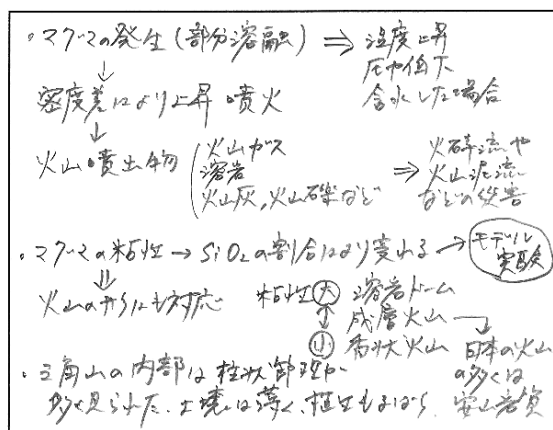 ・マグマの発生(部分溶融) ⇒ 温度上昇
圧力低下
含水した場合
↓
密度差により上昇 噴火
↓
火山噴出物 ( 火山ガス
溶岩
火山灰,火山礫など
⇒ 火砕流や
火山泥流
などの災害
・マグマの粘性 → SiO₂の割合により変わる → モデル
実験
⇓
火山の形にも対応
粘性 大 溶岩ドーム
↕ 成層火山
小 盾状火山
→ 日本の火山
の多くは
安山岩質
・三角山の内部は柱状節理が
多く見られた.土壌は薄く、植生もまばら